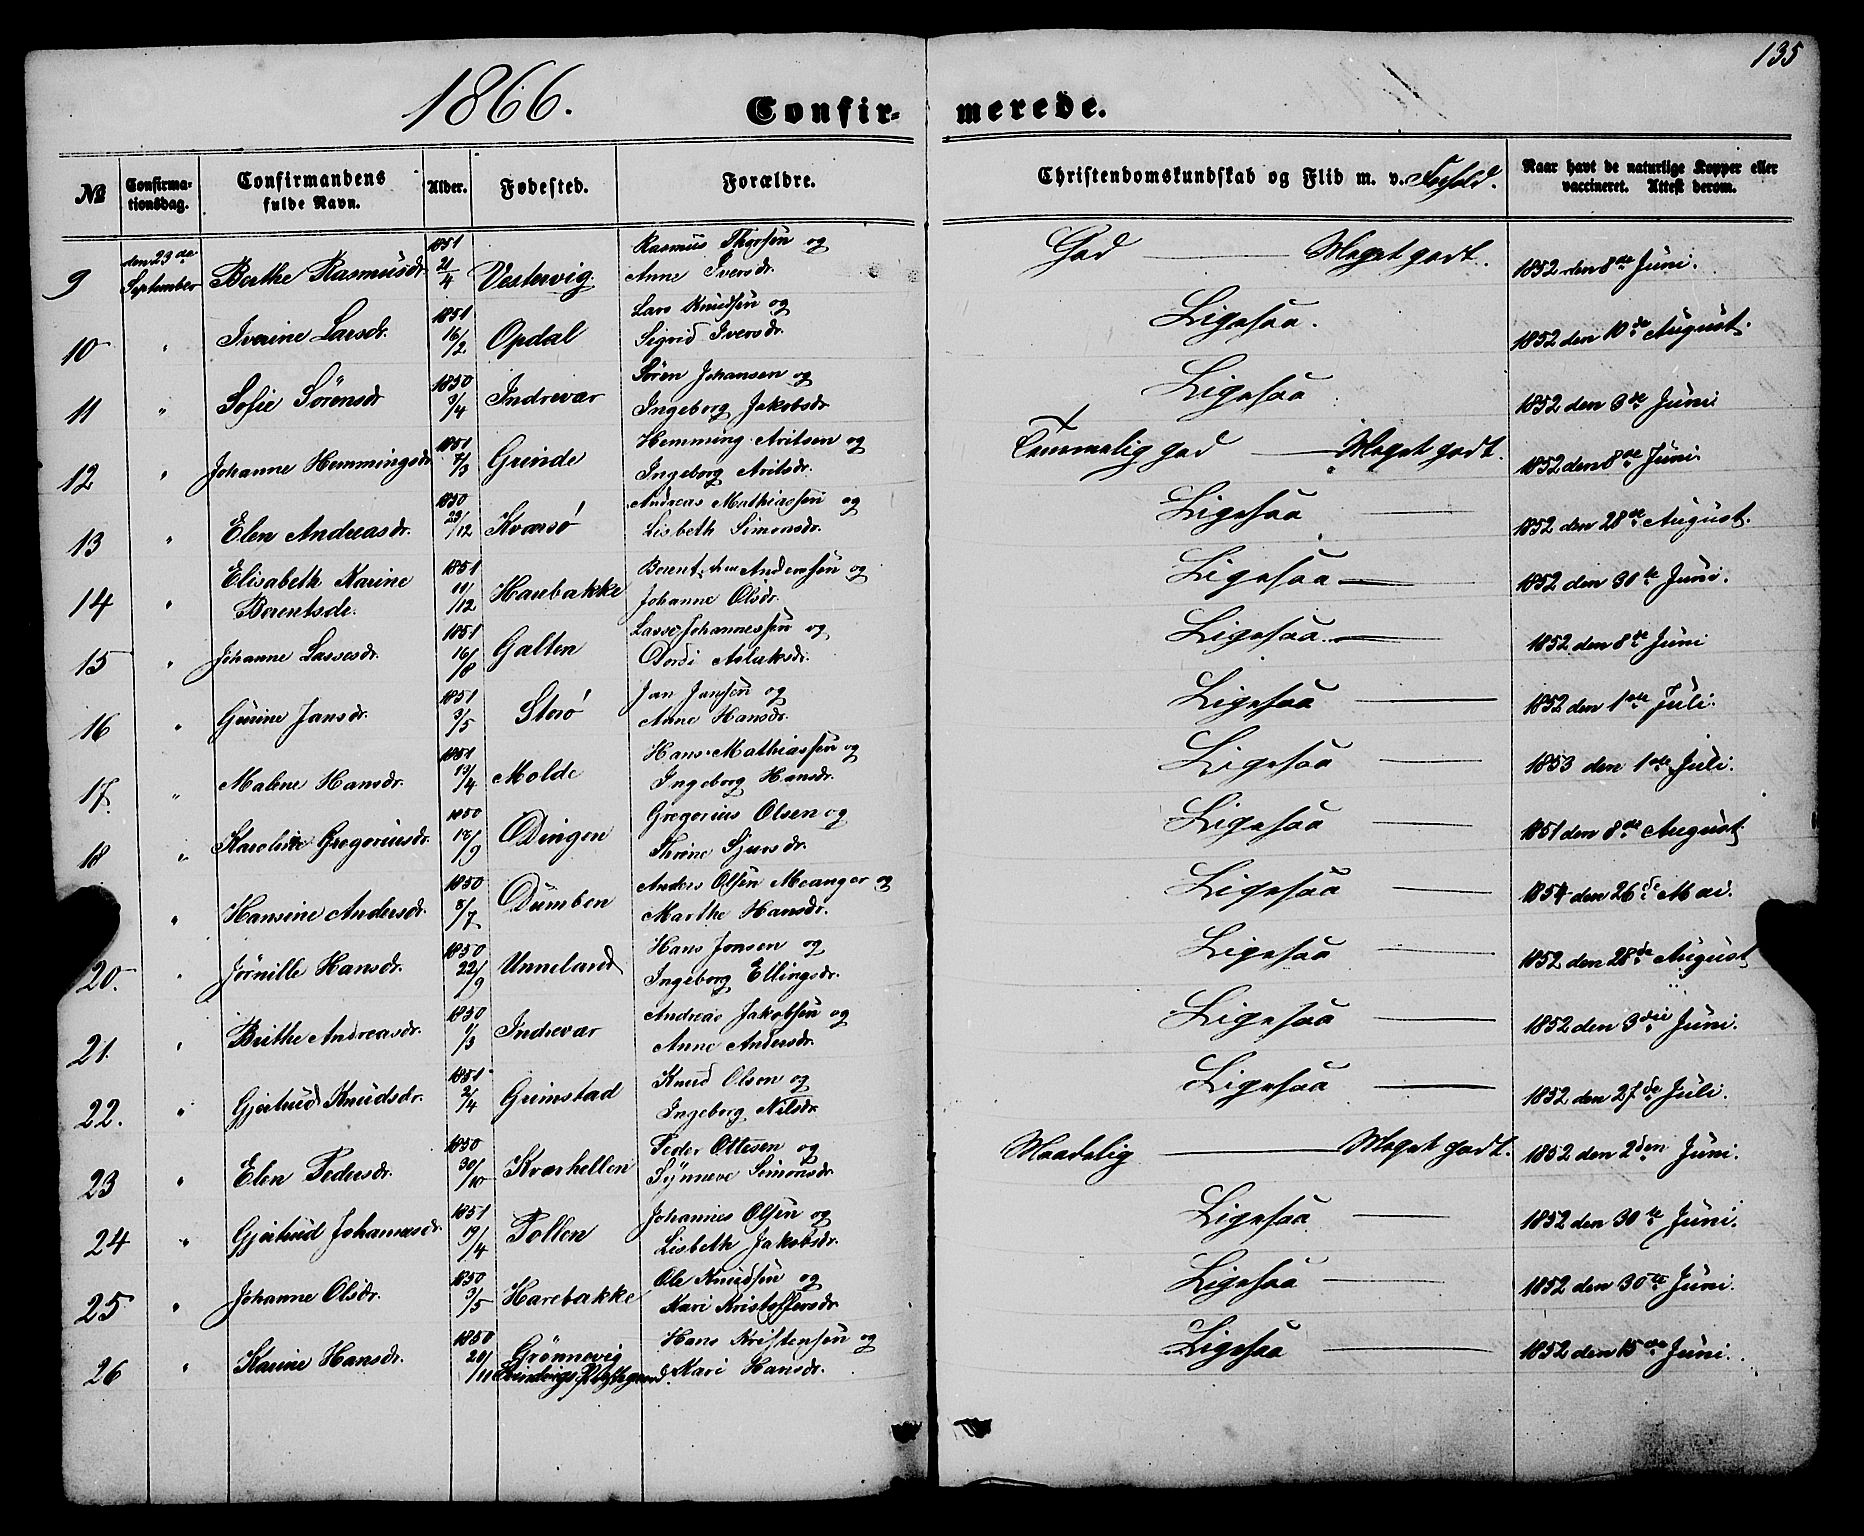 135
1866.
Confir- merede.
№ Confirma-tionsdag. Confirmandens fulde Navn. Alder. Fødested. Forældre. Christendomskundskab og Flid m. v. Forhold. Naar havt de naturlige Kopper eller vaccineret. Attest derom.
9 den 23de September Berthe Rasmusdr. 1851 21/4 Vestervig Rasmus Thorsen og Anne Iversdr. God — Meget godt. 1852 den 8de Juni.
10 " Iverine Larsdr. 1851 16/2 Opdal Lars Knudsen og Sigrid Iversdr. Ligesaa. 1852 den 10de August.
11 " Sofie Sörensdr 1850 3/4 Indrevær Sören Johansen og Ingeborg Jakobsdr. Ligesaa 1852 den 3de Juni
12 " Johanne Hemmingsdr. 1851 7/3 Grinde Hemming Aritsen og Ingeborg Aritsdr. Temmelig god — Meget godt. 1852 den 8de Juni.
13 " Elen Andreasdr. 1850 23/12 Kværsö Andreas Mathiassen og Lisbeth Simonsdr. Ligesaa — 1852 den 28de August.
14 " Elisabeth Karine Berentsdr. 1851 11/12 Harebakke Berent Andersen og Johanne Olsdr. Ligesaa — 1852 den 30te Juni.
15 " Johanne Lassesdr. 1851 16/8 Galten Lasse Johannessen og Aslaksdr. Ligesaa — 1852 den 8de Juni
16 " Gurine Jansdr. 1851 3/5 Storö Jan Jansen og Anne Hansdr. Ligesaa — 1852 den 1ste Juli.
17. " Malene Hansdr. 1851 13/4 Molde Hans Mathiassen og Ingeborg Hansdr. Ligesaa — 1853 den 1ste Juli.
18 " Karoline Gregoriusdr. 1850 18/9 Ödingen Gregorius Olsen og Thrine Sjursdr. Ligesaa — 1851 den 8de August.
" Hansine Andersdr. 1850 8/7 Dumben Anders Olsen Meanger og Marthe Hansdr. Ligesaa — 1854 den 26de Mai.
20. " Jörnille Hansdr. 1850 22/9 Unneland Hans Jonsen og Ingeborg Ellingsdr. Ligesaa — 1852 den 28de August
21. " Brithe Andreasdr. 1850 1/3 Indrevær Andreas Jakobsen og Anne Andersdr. Ligesaa — 1852 den 3die Juni.
22. " Gjertrud Knudsdr. 1851 2/4 Grimstad Knud Olsen og Ingeborg Nilsdr. Ligesaa — 1852 den 27de Juli.
23 " Elen Pedersdr. 1850 30/10 Kværhellen Peder Ottesen og Synneve Simonsdr. Maadelig — Meget godt. 1852 den 2den Juni.
24 " Gjertrud Johannesdr. 1851 19/4 Pollen Johannes Olsen og Lisbeth Jakobsdr. Ligesaa — 1852 den 30te Juni.
25 " Johanne Olsdr. 1850 3/5 Harebakke Ole Knudsen og Kari Kristoffersdr. Ligesaa — 1852 den 30te Juni.
26 " Karine Hansdr. 1850 20/11 Grönnevig Evindvigs Præstegaard. Hans Kristensen og Kari Hansdr. Ligesaa — 1852 den 15de Juni.